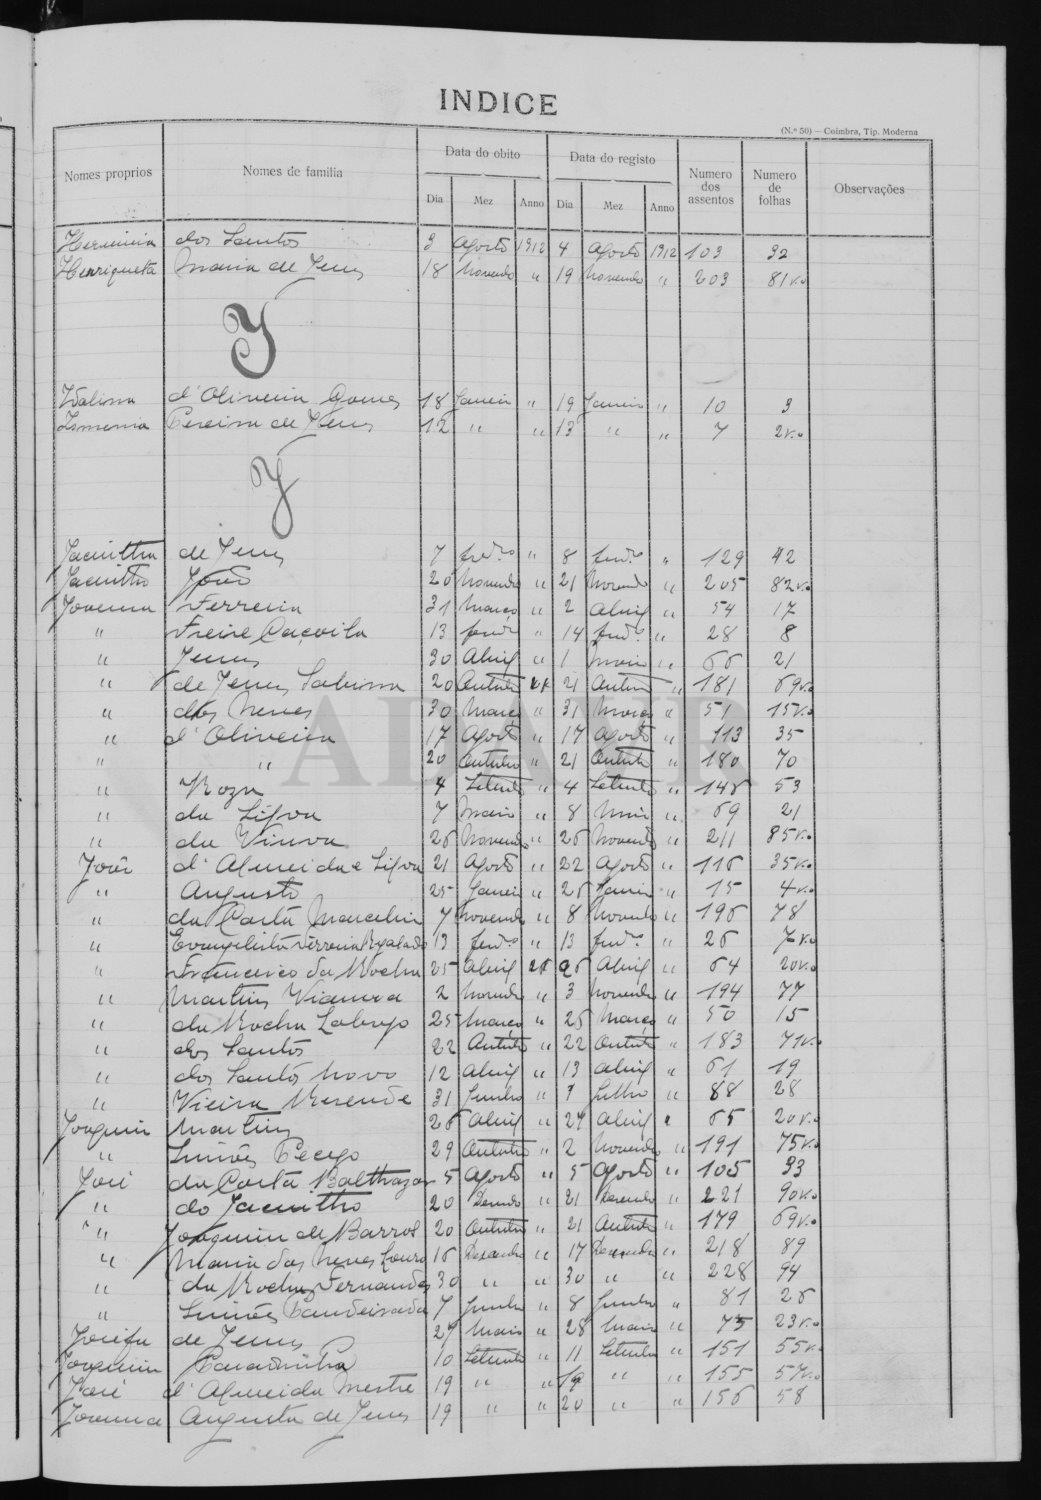 INDICE
(N.º 50) — Coimbra, Tip. Moderna
Nomes proprios Nomes de familia Data do obito Data do registo Numero dos assentos Numero de folhas Observações
Dia Mez Anno Dia Mez Anno
Herminia dos Santos 3 Agosto 1912 4 Agosto 1912 103 32
Henriqueta Maria de Jesus 18 Novembro " 19 Novembro " 203 81 v.o
I
Idalina d'Oliveira Gomes 18 Janeiro " 19 Janeiro " 10 3
Ismenia Pereira de Jesus 12 " " 13 " " 7 2 v.o
J
Jacintha de Jesus 7 " 8 " 129 42
Jacintho João 20 Novembro " 21 Novembro " 205 82 v.o
Joanna Ferreira 31 Março " 2 Abril " 54 17
" Freire Caçoila 13 " 14 " 28 8
" Jesus 30 Abril " 1 Maio " 66 21
" de Jesus Sabina 20 Outubro " 21 Outubro " 181 69 v.o
" das Neves 30 Março " 31 Março " 51 15 v.o
" d'Oliveira 17 Agosto " 17 Agosto " 113 35
" " 20 Outubro " 21 Outubro " 180 70
" Roza 4 Setembro " 4 Setembro " 146 53
" da Silva 7 Maio " 8 Maio " 69 21
" da Viuva 26 Novembro " 26 Novembro " 211 85 v.o
João d'Almeida e Silva 21 Agosto " 22 Agosto " 116 35 v.o
" Augusto 25 Janeiro " 26 Janeiro " 15 4 v.o
" da Costa Marcelino 7 Novembro " 8 Novembro " 196 78
" Evangelista Ferreira Regalado 13 " 13 " 26 7 v.o
" Francisco da Rocha 25 Abril 26 Abril " 64 20 v.o
" Martins Vianna 2 Novembro " 3 Novembro " 194 77
" da Rocha 25 Março " 26 Março " 50 15
" dos Santos 22 Outubro " 22 Outubro " 183 71 v.o
" dos Santos Novo 12 Abril " 13 Abril " 61 19
" Vieira Rezende 31 Junho " 7 Julho " 88 28
Joaquim Martins 26 Abril " 27 Abril " 65 20 v.o
" Simões 29 Outubro " 2 Novembro " 191 75 v.o
José da Costa Balthazar 5 Agosto " 5 Agosto " 105 33
" do Jacintho 20 " 21 Dezembro " 221 90 v.o
" Joaquim de Barros 20 Outubro " 21 Outubro " 179 69 v.o
" Maria das Neves Louro 16 Dezembro " 17 Dezembro " 218 89
" da Rocha Fernandes 30 " " 30 " " 228 94
" Simões 7 Junho " 8 Junho " 81 26
Josefa de Jesus 27 Maio " 28 Maio " 75 23 v.o
Joaquim 10 Setembro " 11 Setembro " 151 55 v.o
José d'Almeida Mestre 19 " " 19 " " 155 57 v.o
Joanna Augusta de Jesus 19 " " 20 " " 156 58